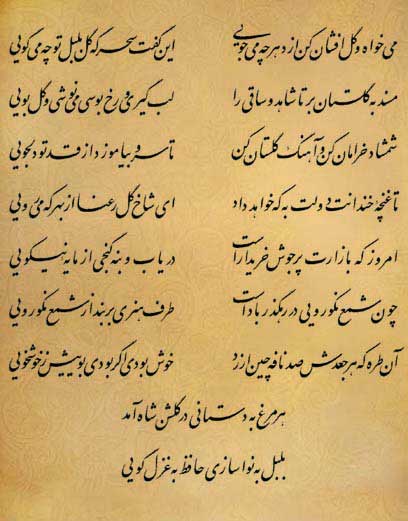 می خواه و گل افشان کن از دهر چه می جویی این گفت سحرگه گل بلبل تو چه می گویی
مسند به گلستان بر تا شاهد و ساقی را لب گیری و رخ بوسی می نوشی و گل بویی
شمشاد خرامان کن و آهنگ گلستان کن تا سرو بیاموزد از قد تو دلجویی
تا غنچهٔ خندانت دولت به که خواهد داد ای شاخ گل رعنا از بهر که می رویی
امروز که بازارت پرجوش خریدار است دریاب و بنه گنجی از مایه نیکویی
چون شمع نکورویی در رهگذر باد است طرف هنری بربند از شمع نکورویی
آن طره که هر جعدش صد نافه چین ارزد خوش بودی اگر بودی بوییش ز خوشخویی
هر مرغ به دستانی در گلشن شاه آمد
بلبل به نواسازی حافظ به غزل گویی